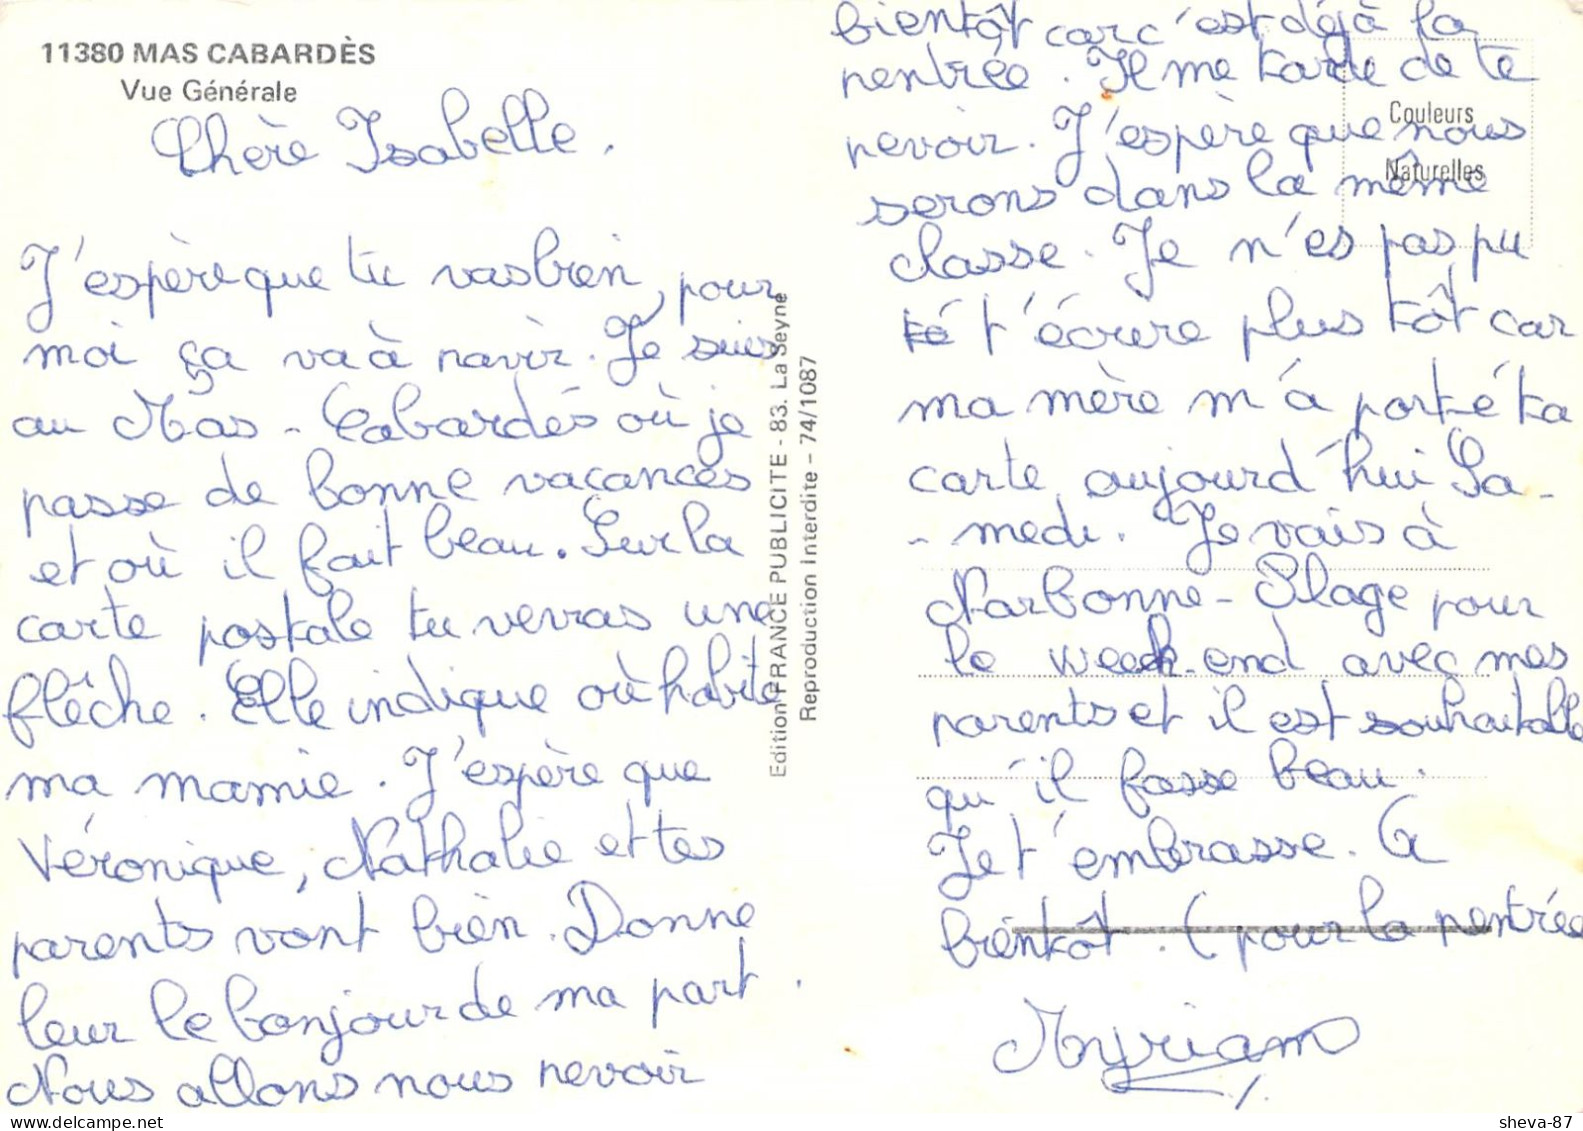 11380 MAS CABARDÈS
Vue Générale
Chère Isabelle.
J'espère que tu vas bien, pour
moi ça va à ravir. Je suis
au Mas-Cabardès où je
passe de bonne vacances
et où il fait beau. Sur la
carte postale tu verras une
flêche. Elle indique où habite
ma mamie. J'espère que
Véronique, Nathalie et tes
parents vont bien. Donne
leur le bonjour de ma part.
Nous allons nous revoir
Edition FRANCE PUBLICITE - 83. La Seyne
Reproduction Interdite - 74/1087
bientôt car c'est déjà la
rentrée. Il me tarde de te
revoir. J'espère que nous
serons dans la même
classe. Je n'es pas pu
té t'écrire plus tôt car
ma mère m'a porté ta
carte aujourd'hui Sa-
-medi. Je vais à
Narbonne-Plage pour
le week-end avec mes
parents et il est souhaitable
qu'il fasse beau.
Je t'embrasse. A
bientôt. (pour la rentrée
Myriam
Couleurs
Naturelles
sheva-87